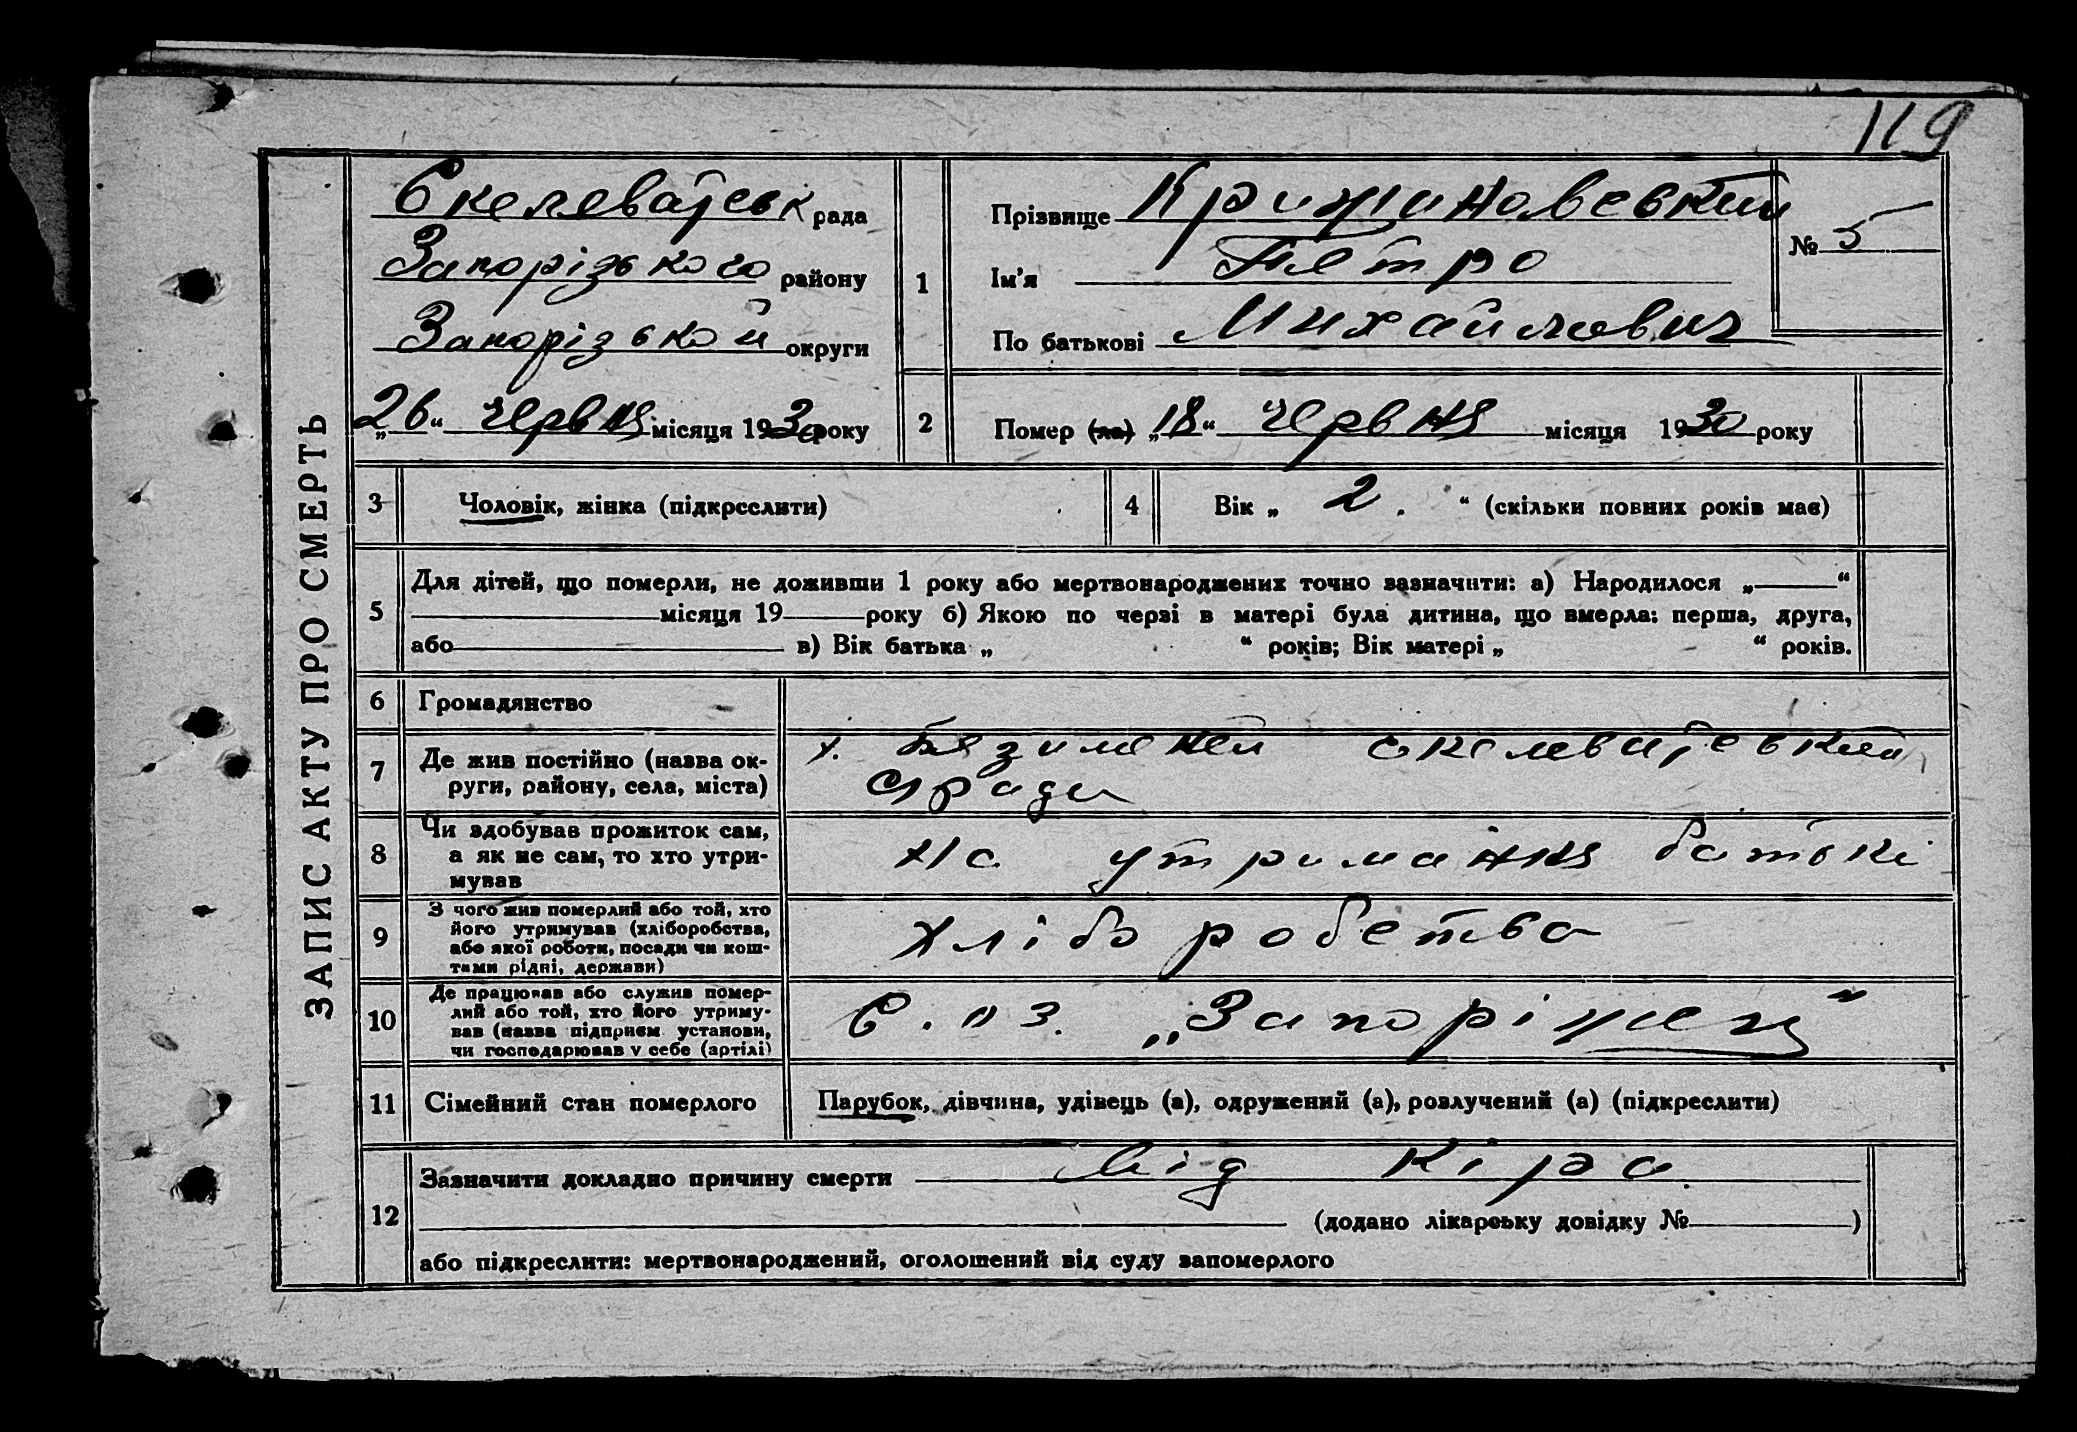 119
ЗАПИС АКТУ ПРО СМЕРТЬ
Скелеватськ рада
Запорізького району
Запорізькой округи
„26“ червня місяця 1930 року
1
Прізвище Крижановський
Ім'я Петро
По батькові Михайлович
№ 5
2
Помер (ла) „18“ червня місяця 1930 року
3 Чоловік, жінка (підкреслити)
4 Вік „ 2. “ (скільки повних років має)
5
Для дітей, що померли, не доживши 1 року або мертвонароджених точно зазначити: а) Народилося „ “
місяця 19 року б) Якою по черзі в матері була дитина, що вмерла: перша, друга,
або в) Вік батька „ “ років; Вік матері „ “ років.
6 Громадянство
7
Де жив постійно (назва ок-
руги, району, села, міста)
х. скелеватськии
с ради
8
Чи здобував прожиток сам,
а як не сам, то хто утри-
мував
на утримання батькі
9
З чого жив померлий або той, хто
його утримував (хліборобства,
або якої роботи, посади чи кош-
тами рідні, держави)
хліборобства
10
Де працював або служив помер-
лий або той, хто його утриму-
вав (назва підприєм установи,
чи господарював у себе (артілі)
С.пз. „Запоріжец“
11 Сімейний стан померлого
Парубок, дівчина, удівець (а), одружений (а), розлучений (а) (підкреслити)
12
Зазначити докладно причину смерти від кіра
(додано лікарську довідку № )
або підкреслити: мертвонароджений, оголошений від суду запомерлого